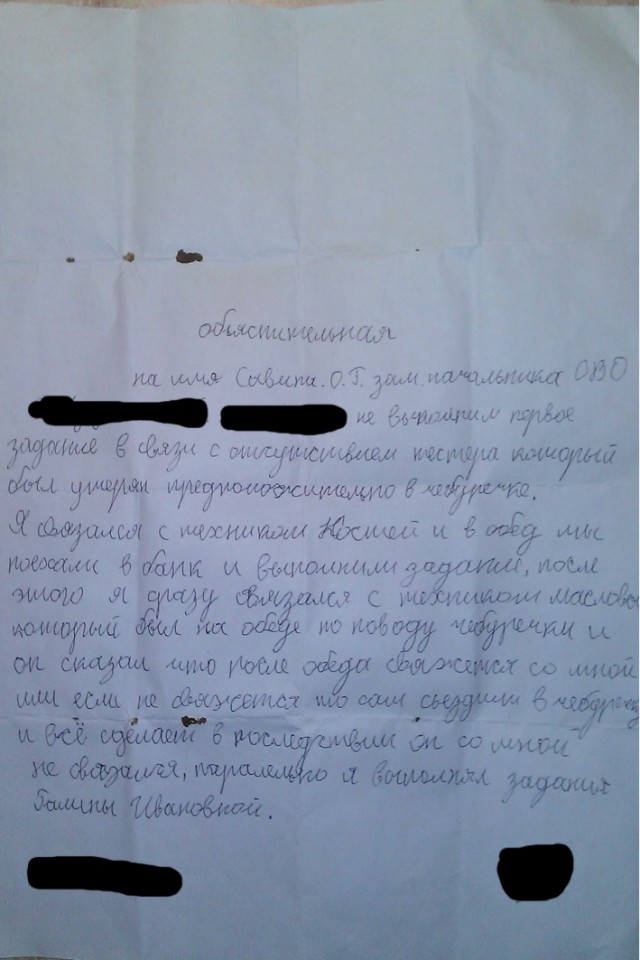 объястительная
на имя Сывина. О.Г. зам. начальника ОВО
не выполнил первое
задание в связи с отсутствием тестера который
был утерян предположительно в чебуречке.
Я связался с техником Костей и в обед мы
поехали в банк и выполнили задание, после
этого я сразу связался с техником масловы
который был на обеде по поводу чебуречки и
он сказал что после обеда свяжется со мной
или если не свяжется то сам съездит в чебуречку
и всё сделает в последствии он со мной
не связался, паралельно я выполнял задания
Галины Ивановной.